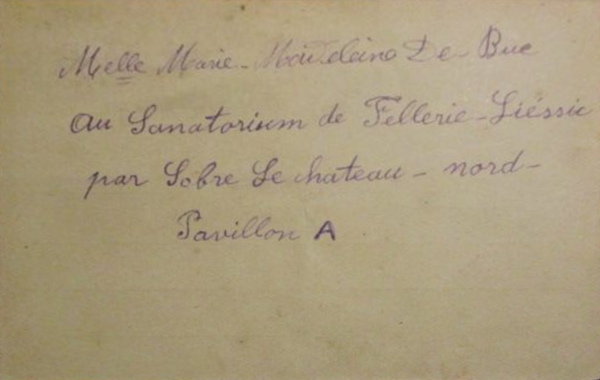 Melle Marie-Madeleine De Buc
au Sanatorium de Fellerie-Liéssie
par Solre Le chateau - nord -
Pavillon A